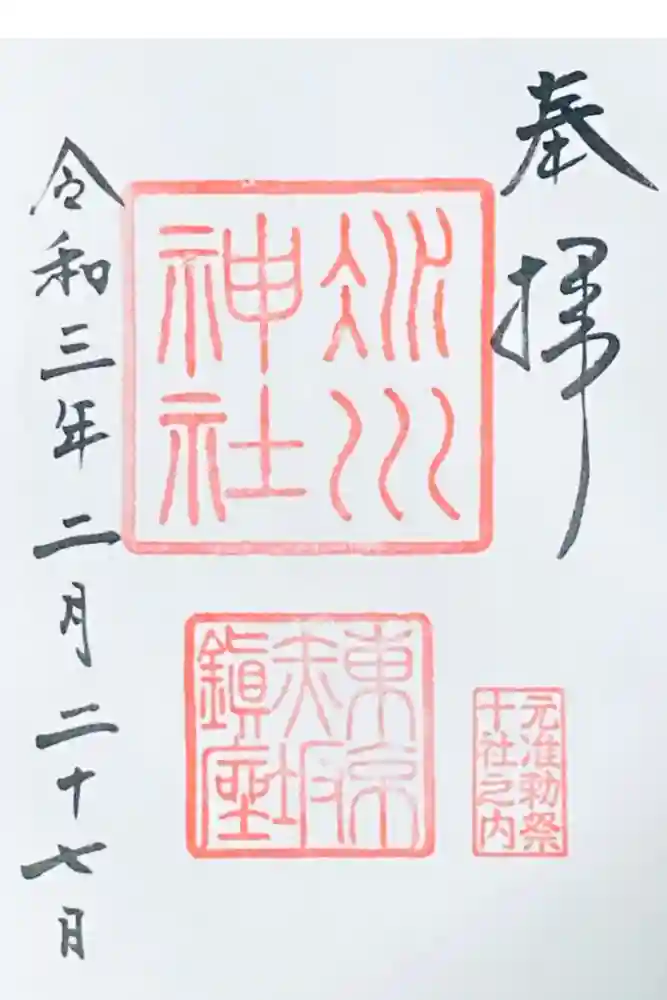 奉拝
氷川
神社
東京
赤坂
鎮座
元准勅祭
十社之内
令和三年二月二十七日